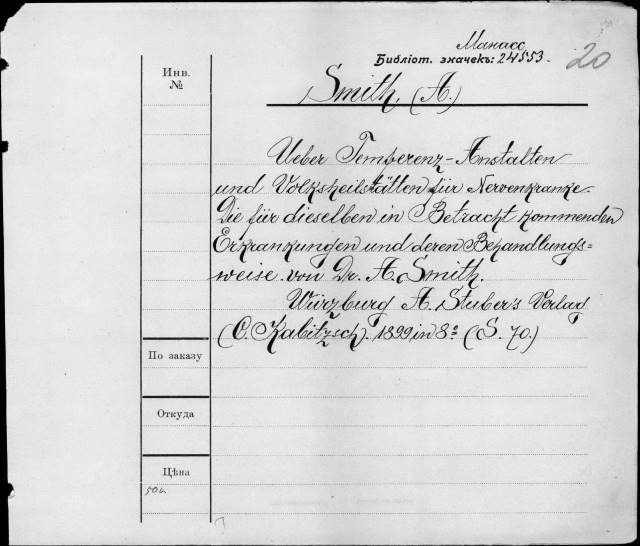 Манасс
Библіот. значекъ: 24553.
20
Инв.
№
Smith. (A.)
Ueber Temperenz-Anstalten
und Volksheilstätten für Nervenkranke.
Die für dieselben in Betracht kommenden
Erkrankungen und deren Behandlungs=
weise. von Dr. A. Smith.
Würzburg A. Stuber's Verlag
(C. Kabitzsch). 1899 in 8º (S. 70.)
По заказу
Откуда
Цѣна